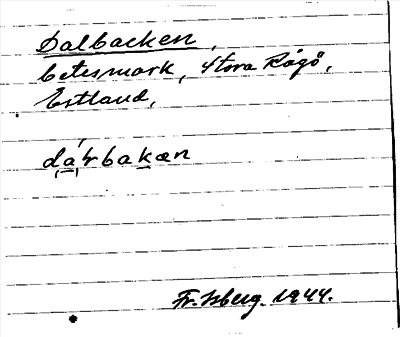 Dalbacken,
betesmark, Stora Rågö,
Estland,
Fr. Isberg. 1944.